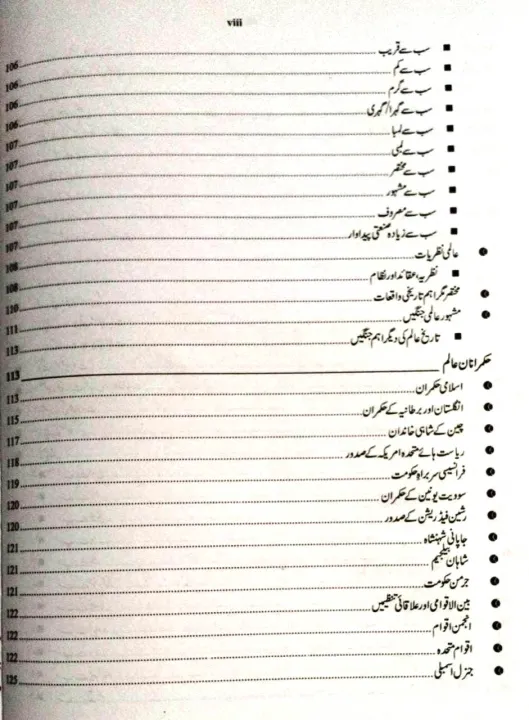 viii
■ سب سے قریب 106
■ سب سے کم 106
■ سب سے گرم 106
■ سب سے گہرا/گہری 106
■ سب سے لمبا 107
■ سب سے لمبی 107
■ سب سے مختصر 107
■ سب سے مشہور 107
■ سب سے معروف 107
■ سب سے زیادہ صنعتی پیداوار 107
عالمی نظریات 108
■ نظریہ، عقائد اور نظام 108
مختصر مگر اہم تاریخی واقعات 110
مشہور عالمی جنگیں 111
■ تاریخ عالم کی دیگر اہم جنگیں 113
حکمرانان عالم 113
اسلامی حکمران 113
انگلستان اور برطانیہ کے حکمران 115
چین کے شاہی خاندان 117
ریاست ہائے متحدہ امریکہ کے صدور 118
فرانسیسی سربراہ حکومت 119
سوویت یونین کے حکمران 120
رشین فیڈریشن کے صدور 120
جاپانی شہنشاہ 121
شاہان بیلجیم 121
جرمن حکومت 121
بین الاقوامی اور علاقائی تنظیمیں 122
انجمن اقوام 122
اقوام متحدہ 122
جنرل اسمبلی 125